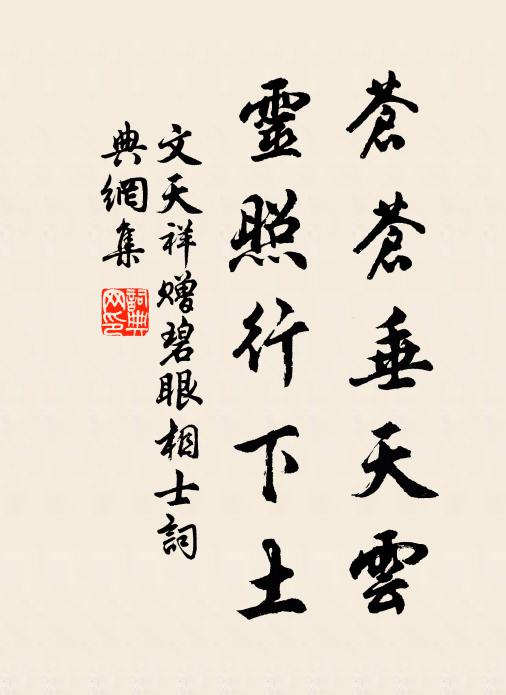 蒼蒼垂天雲
靈照行下土
文天祥贈碧眼相士詞
典網集
詞典網印